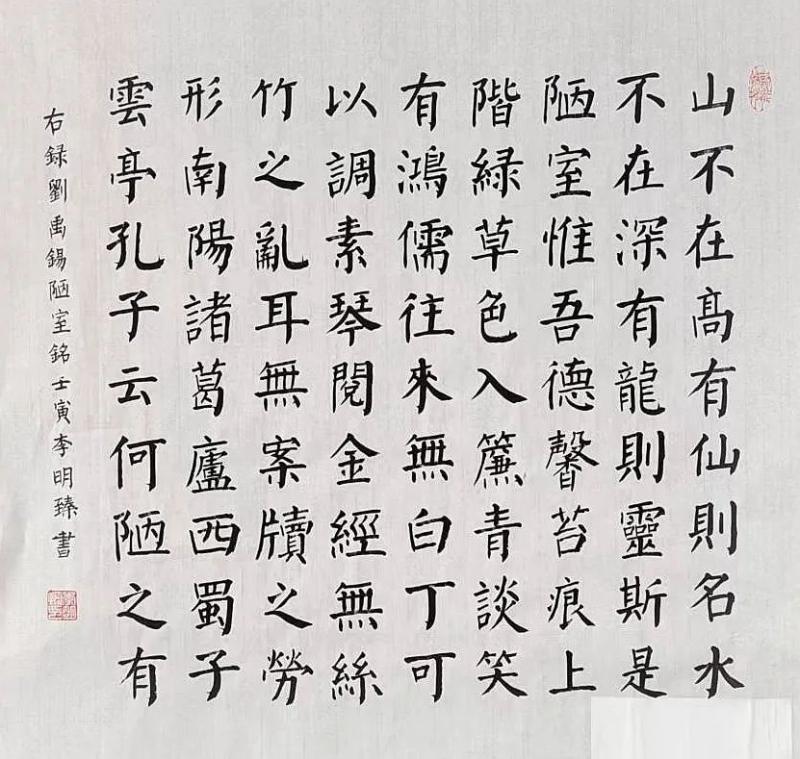 山不在高有仙則名水
不在深有龍則靈斯是
陋室惟吾德馨苔痕上
階緑草色入簾青談笑
有鴻儒往來無白丁可
以調素琴閱金經無絲
竹之亂耳無案牘之勞
形南陽諸葛廬西蜀子
雲亭孔子云何陋之有
右録劉禹錫陋室銘壬寅李明臻書